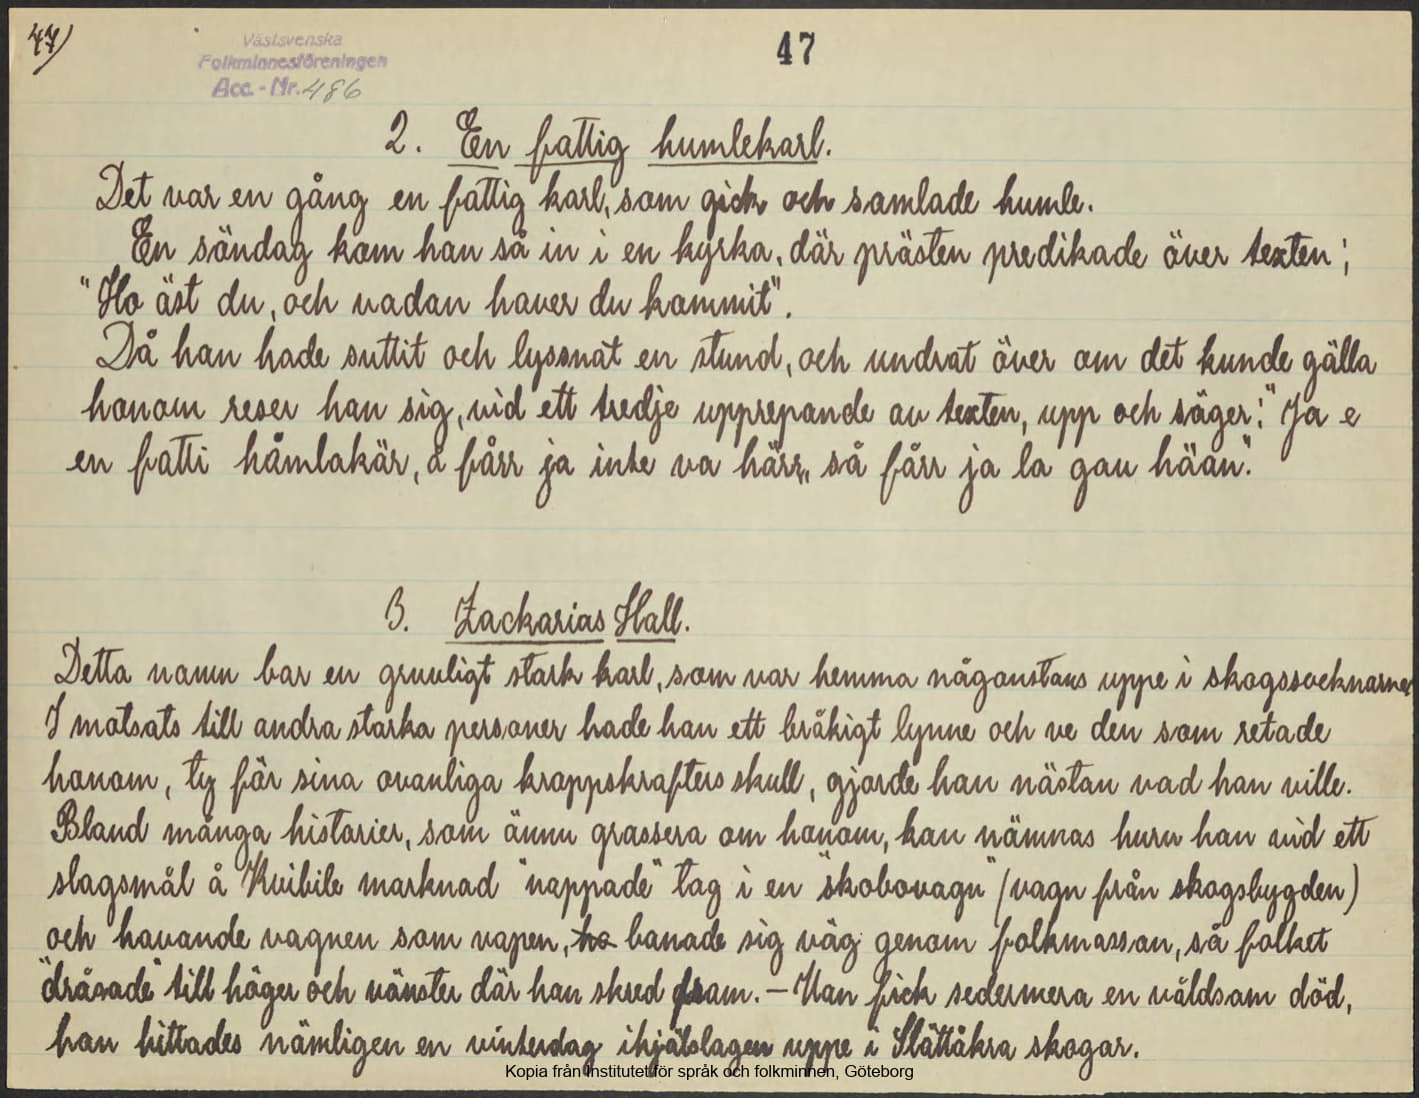 47)
Västsvenska
Folkminnesföreningen
Acc.-Nr. 486
47
2. En fattig humlekarl.
Det var en gång en fattig karl, som gick och samlade humle.
En söndag kom han så in i en kyrka, där prästen predikade över texten;
"Ho äst du, och vadan haver du kommit".
Då han hade suttit och lyssnat en stund, och undrat över om det kunde gälla
honom reser han sig, vid ett tredje upprepande av texten, upp och säger: "Ja e
en fatti håmlakär, å fårr ja inte va härr, så fårr ja la gau häan".
3. Zackarias Hall.
Detta namn bar en gruvligt stark karl, som var hemma någonstans uppe i skogssocknarne.
I motsats till andra starka personer hade han ett bråkigt lynne och ve den som retade
honom, ty för sina ovanliga kroppskrafters skull, gjorde han nästan vad han ville.
Bland många historier, som ännu grassera om honom, kan nämnas huru han vid ett
slagsmål å Kvibile marknad "nappade" tag i en "skobovagn" (vagn från skogsbygden)
och havande vagnen som vapen, ha banade sig väg genom folkmassan, så folket
"dråsade" till höger och vänster där han skred fram. – Han fick sedermera en våldsam död,
han hittades nämligen en vinterdag ihjälslagen uppe i Slättåkra skogar.
Kopia från Institutet för språk och folkminnen, Göteborg